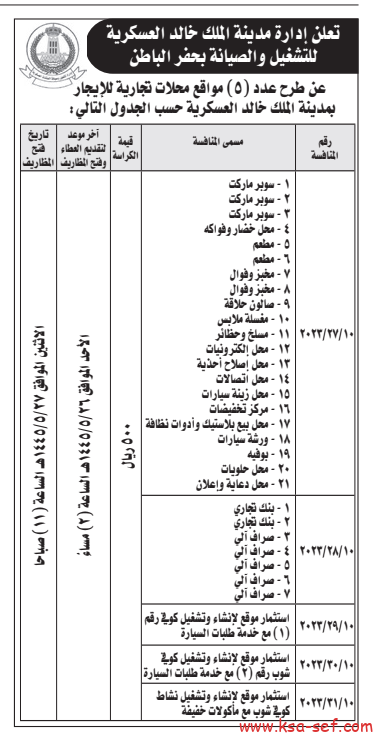 تعلن إدارة مدينة الملك خالد العسكرية
للتشغيل والصيانة بحفر الباطن
عن طرح عدد (٥) مواقع محلات تجارية للإيجار
بمدينة الملك خالد العسكرية حسب الجدول التالي:
رقم المنافسة
مسمى المنافسة
قيمة الكراسة
آخر موعد لتقديم العطاء وفتح المظاريف
تاريخ فتح المظاريف
٢٠٢٣/٢٧/١٠
١ - سوبر ماركت
٢ - سوبر ماركت
٣ - سوبر ماركت
٤ - محل خضار وفواكه
٥ - مطعم
٦ - مطعم
٧ - مخبز وفوال
٨ - مخبز وفوال
٩ - صالون حلاقة
١٠ - مغسلة ملابس
١١ - مسلخ وحظائر
١٢ - محل إلكترونيات
١٣ - محل إصلاح أحذية
١٤ - محل اتصالات
١٥ - محل زينة سيارات
١٦ - مركز تخفيضات
١٧ - محل بيع بلاستيك وأدوات نظافة
١٨ - ورشة سيارات
١٩ - بوفيه
٢٠ - محل حلويات
٢١ - محل دعاية وإعلان
٢٠٢٣/٢٨/١٠
١ - بنك تجاري
٢ - بنك تجاري
٣ - صراف آلي
٤ - صراف آلي
٥ - صراف آلي
٦ - صراف آلي
٧ - صراف آلي
٢٠٢٣/٢٩/١٠
استثمار موقع لإنشاء وتشغيل كوفي رقم
(١) مع خدمة طلبات السيارة
٢٠٢٣/٣٠/١٠
استثمار موقع لإنشاء وتشغيل كوفي
شوب رقم (٢) مع خدمة طلبات السيارة
٢٠٢٣/٣١/١٠
استثمار موقع لإنشاء وتشغيل نشاط
كوفي شوب مع مأكولات خفيفة
٥٠٠ ريال
الأحد الموافق ١٤٤٥/٥/٢٦هـ الساعة (٢) مساءً
الاثنين الموافق ١٤٤٥/٥/٢٧هـ الساعة (١١) صباحا
www.ksa-sef.com